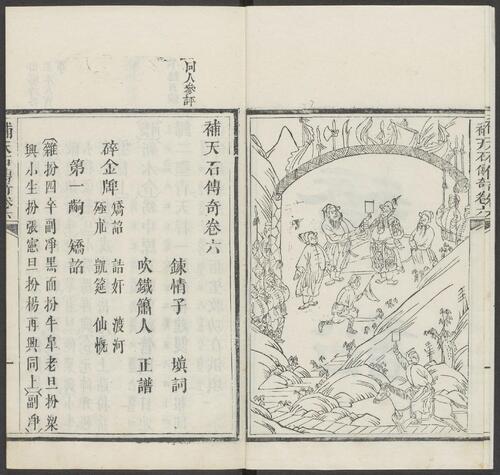 補天石傳奇卷六
同人參評
補天石傳奇卷六
鍊情子 填詞
吹鐵簫人 正譜
碎金牌
矯詔 詰奸 渡河
殛虎 凱筵 仙慨
第一齣 矯詔
雜扮四卒副凈黑面扮牛皐老旦扮梁
興小生扮張憲旦扮楊再興同上副凈
補天石傳奇卷六